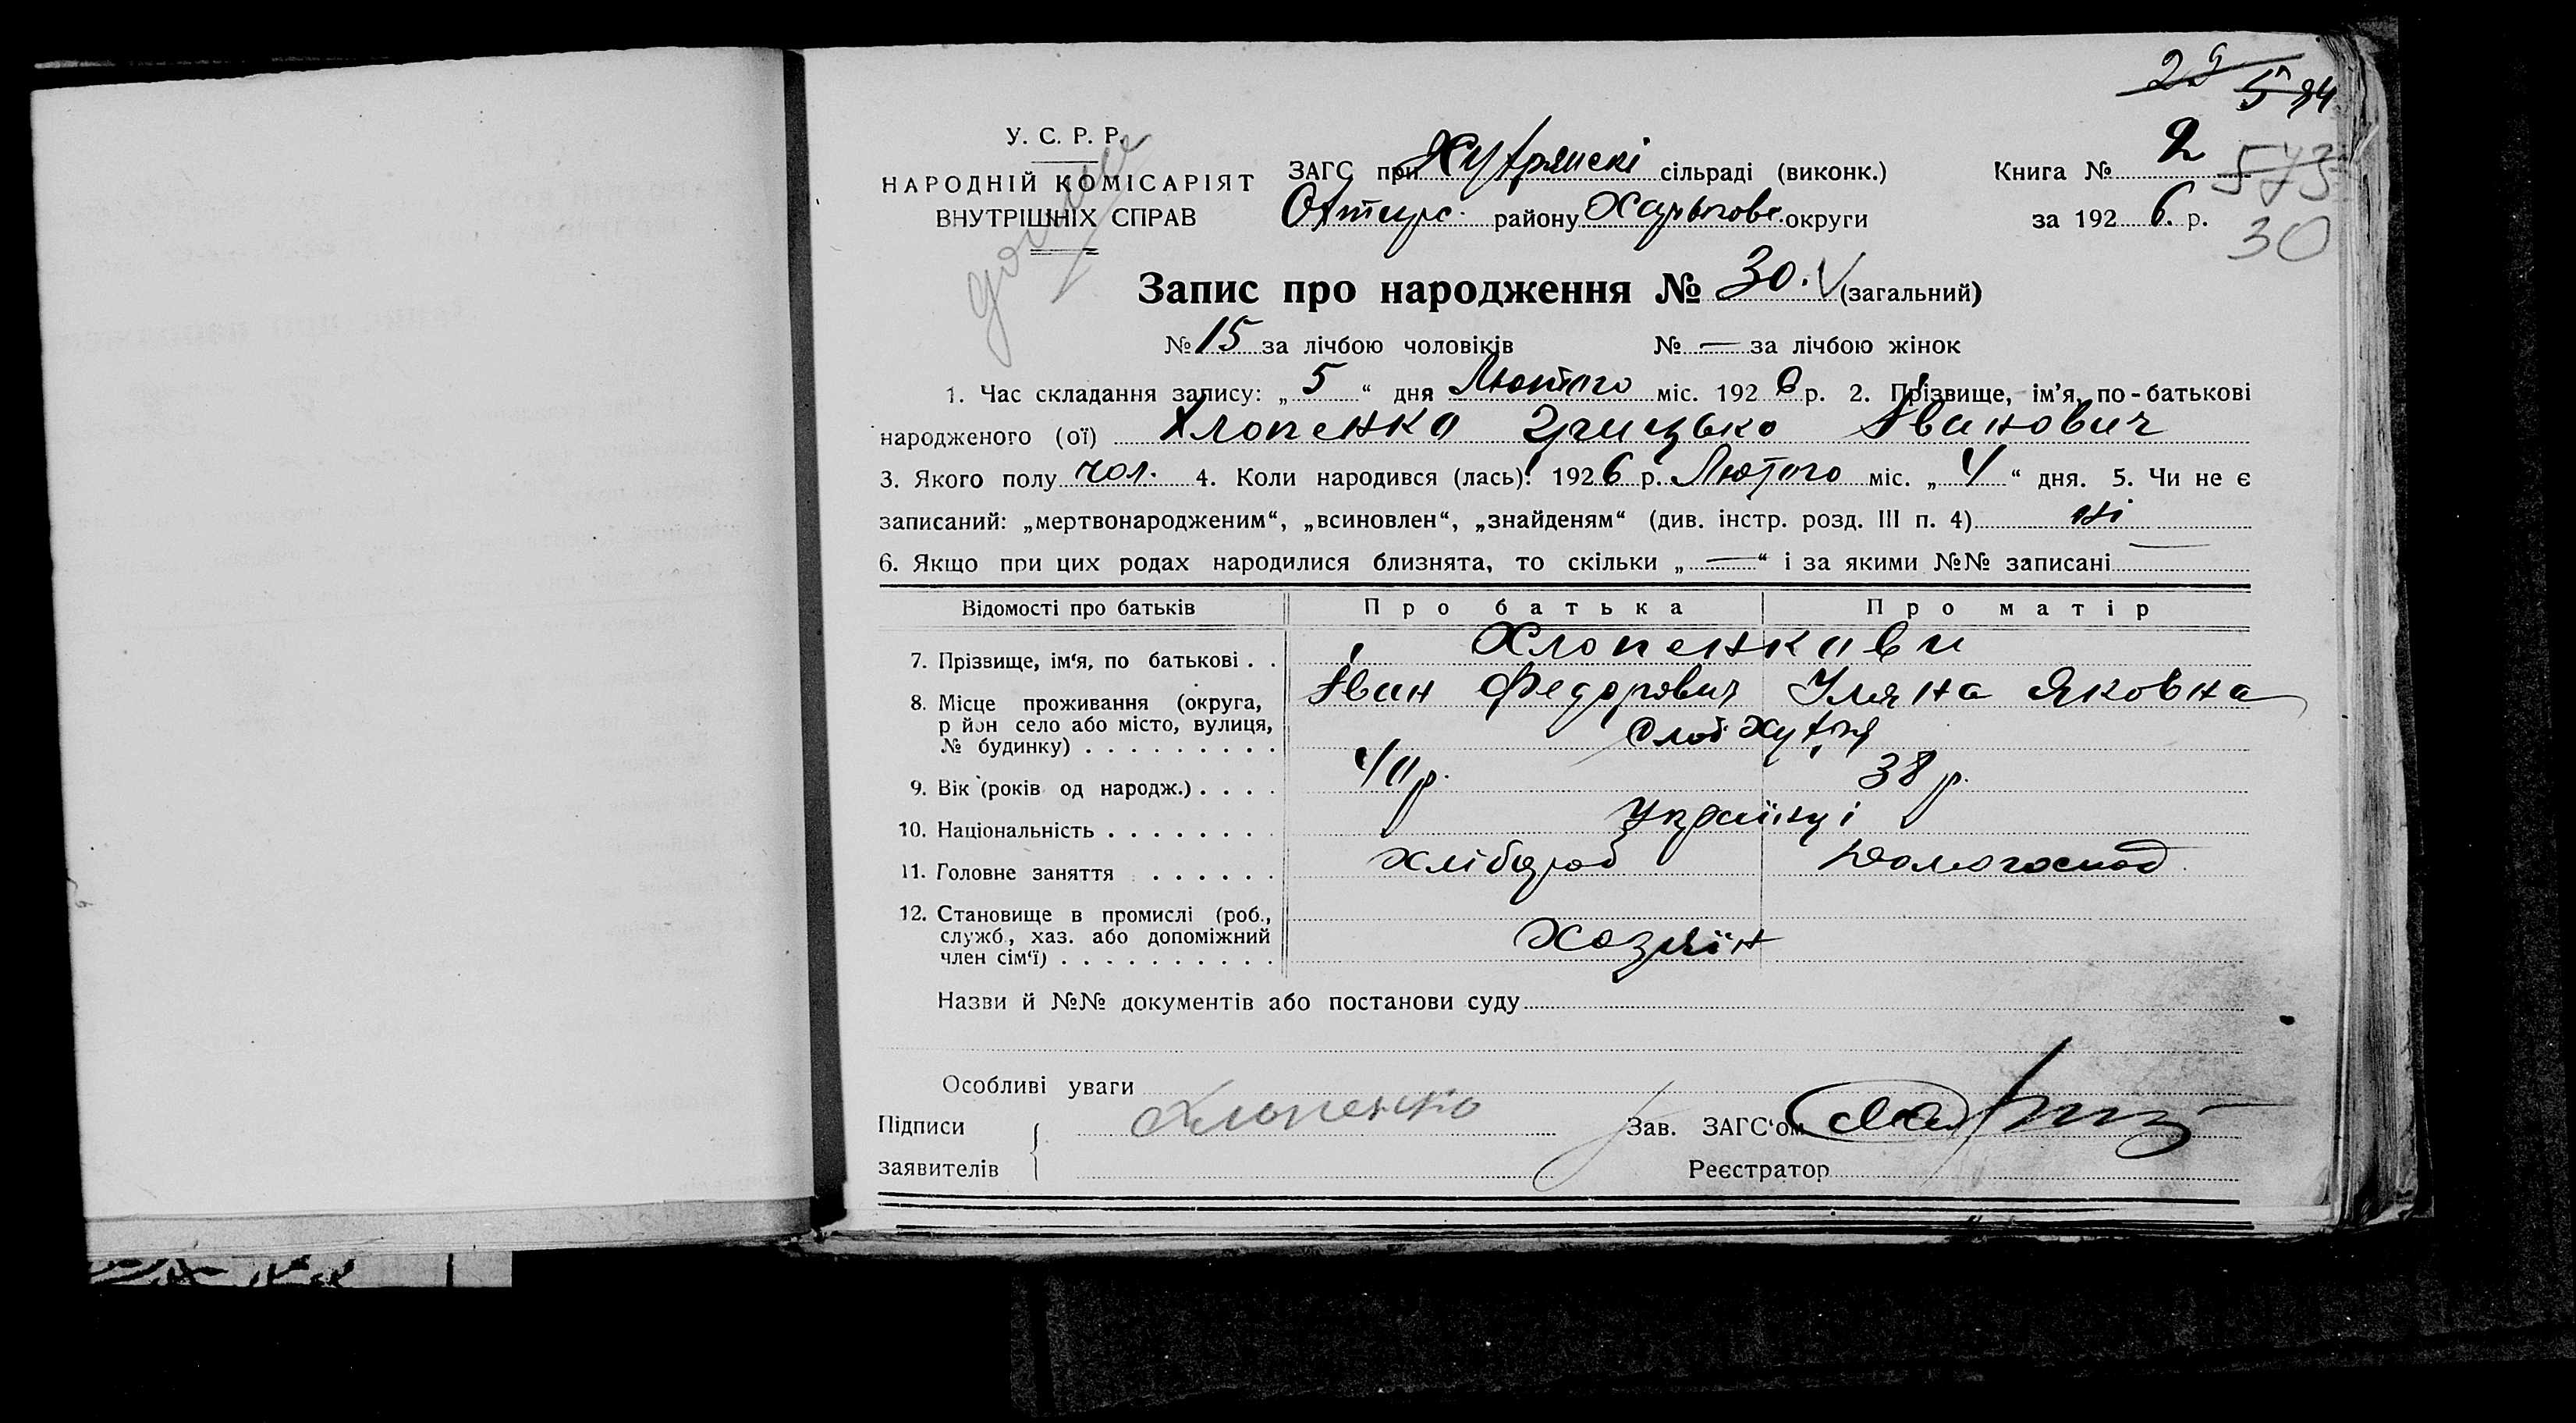 574
У. С. Р. Р.
НАРОДНІЙ КОМІСАРІЯТ
ВНУТРІШНІХ СПРАВ
ЗАГС при сільраді (виконк.)
району Харьковс. округи
Книга № 2
573
за 1926. р.
30
Запис про народження № 30. (загальний)
№ 15 за лічбою чоловіків № — за лічбою жінок
1. Час складання запису: „5“ дня Лютого міс. 1926 р. 2. Прізвище, ім’я, по-батькові
народженого (ої) Хлопенко Грицько Іванович
3. Якого полу чол. 4. Коли народився (лась): 1926 р. Лютого міс. „4“ дня. 5. Чи не є
записаний: „мертвонародженим“, „всиновлен“, „знайденям“ (див. інстр. розд. III п. 4) ні
6. Якщо при цих родах народилися близнята, то скільки „—“ і за якими №№ записані —
Відомості про батьків Про батька Про матір
7. Прізвище, ім‘я, по батькові . . Хлопенкови
Іван Федорович Уляна Яковна
8. Місце проживання (округа,
р йон село або місто, вулиця,
№ будинку) . . . . . . . . . Слоб
9. Вік (років од народж.) . . . . 40 р. 38 р.
10. Національність . . . . . . . . Українці
11. Головне заняття . . . . . . Хлібороб Домогоспод.
12. Становище в промислі (роб.,
служб., хаз. або допоміжний
член сім‘ї) . . . . . . . . . . Хозяїн
Назви й №№ документів або постанови суду
Особливі уваги
Підписи Хлопенко Зав. ЗАГС‘ом
заявителів Реєстратор